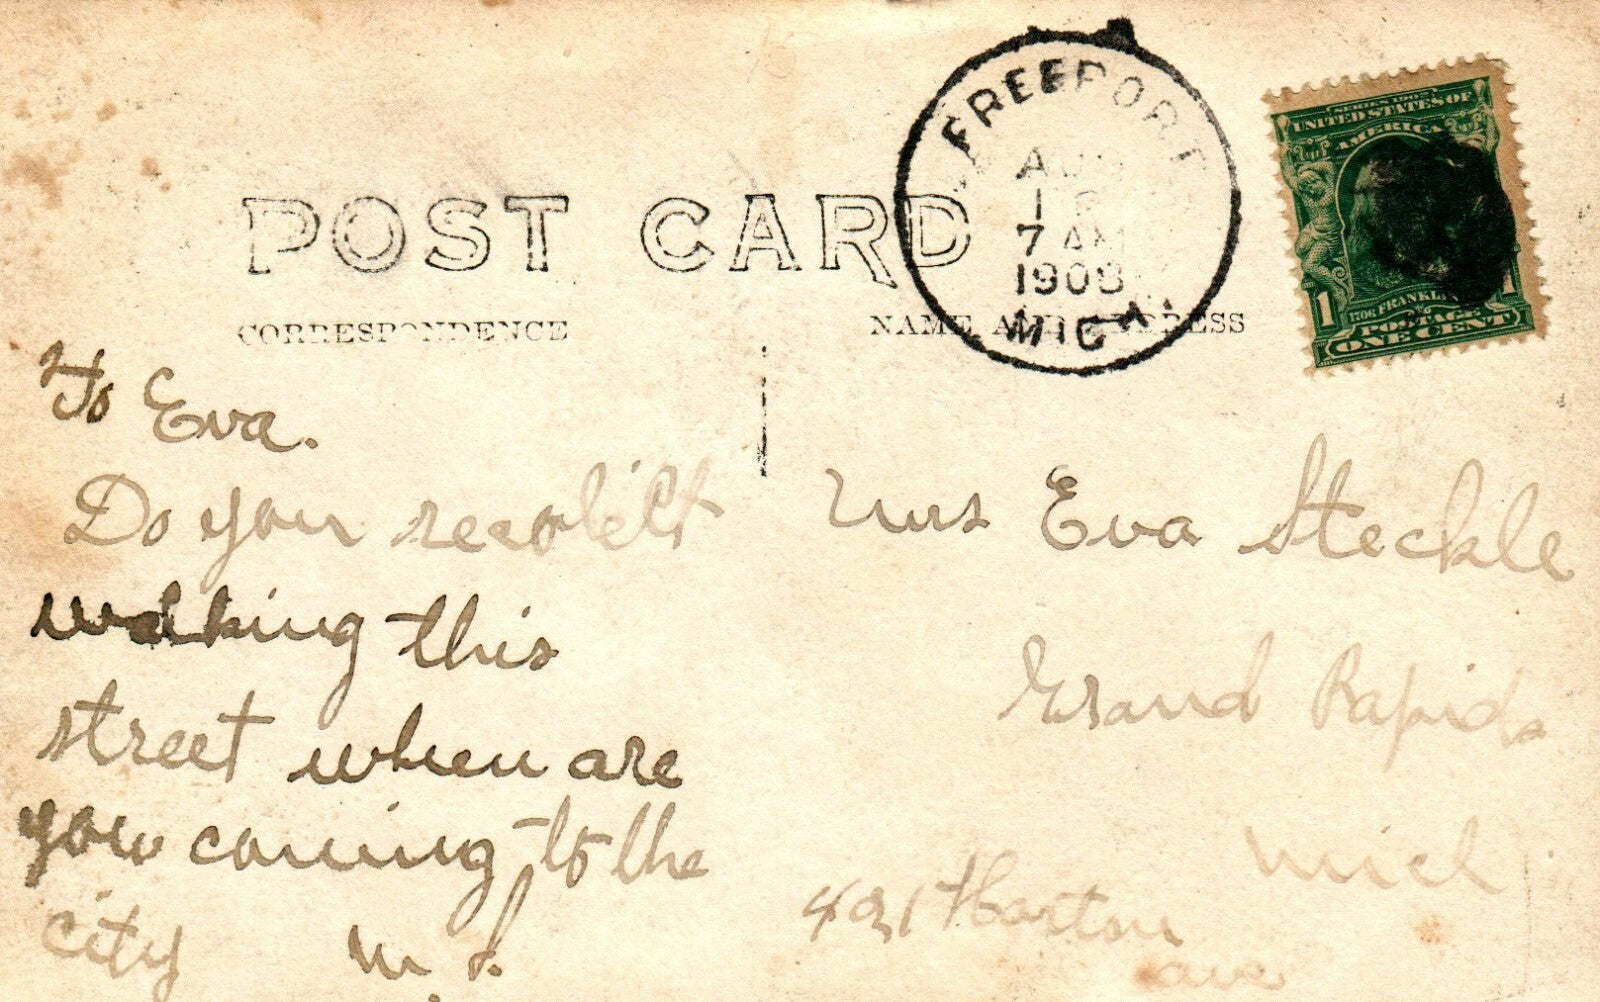 POST CARD
CORRESPONDENCE
NAME AND ADDRESS
FREEPORT
AUG
7 AM
1908
MICH.
SERIES 1902
UNITED STATES OF
AMERICA
1 1
1706 FRANKLIN
POSTAGE
ONE CENT
To Eva.
Do you recolect
walking this
street when are
you coming to the
city M. S.
Mrs Eva Steckle
Grand Rapids
Mich
421
ave